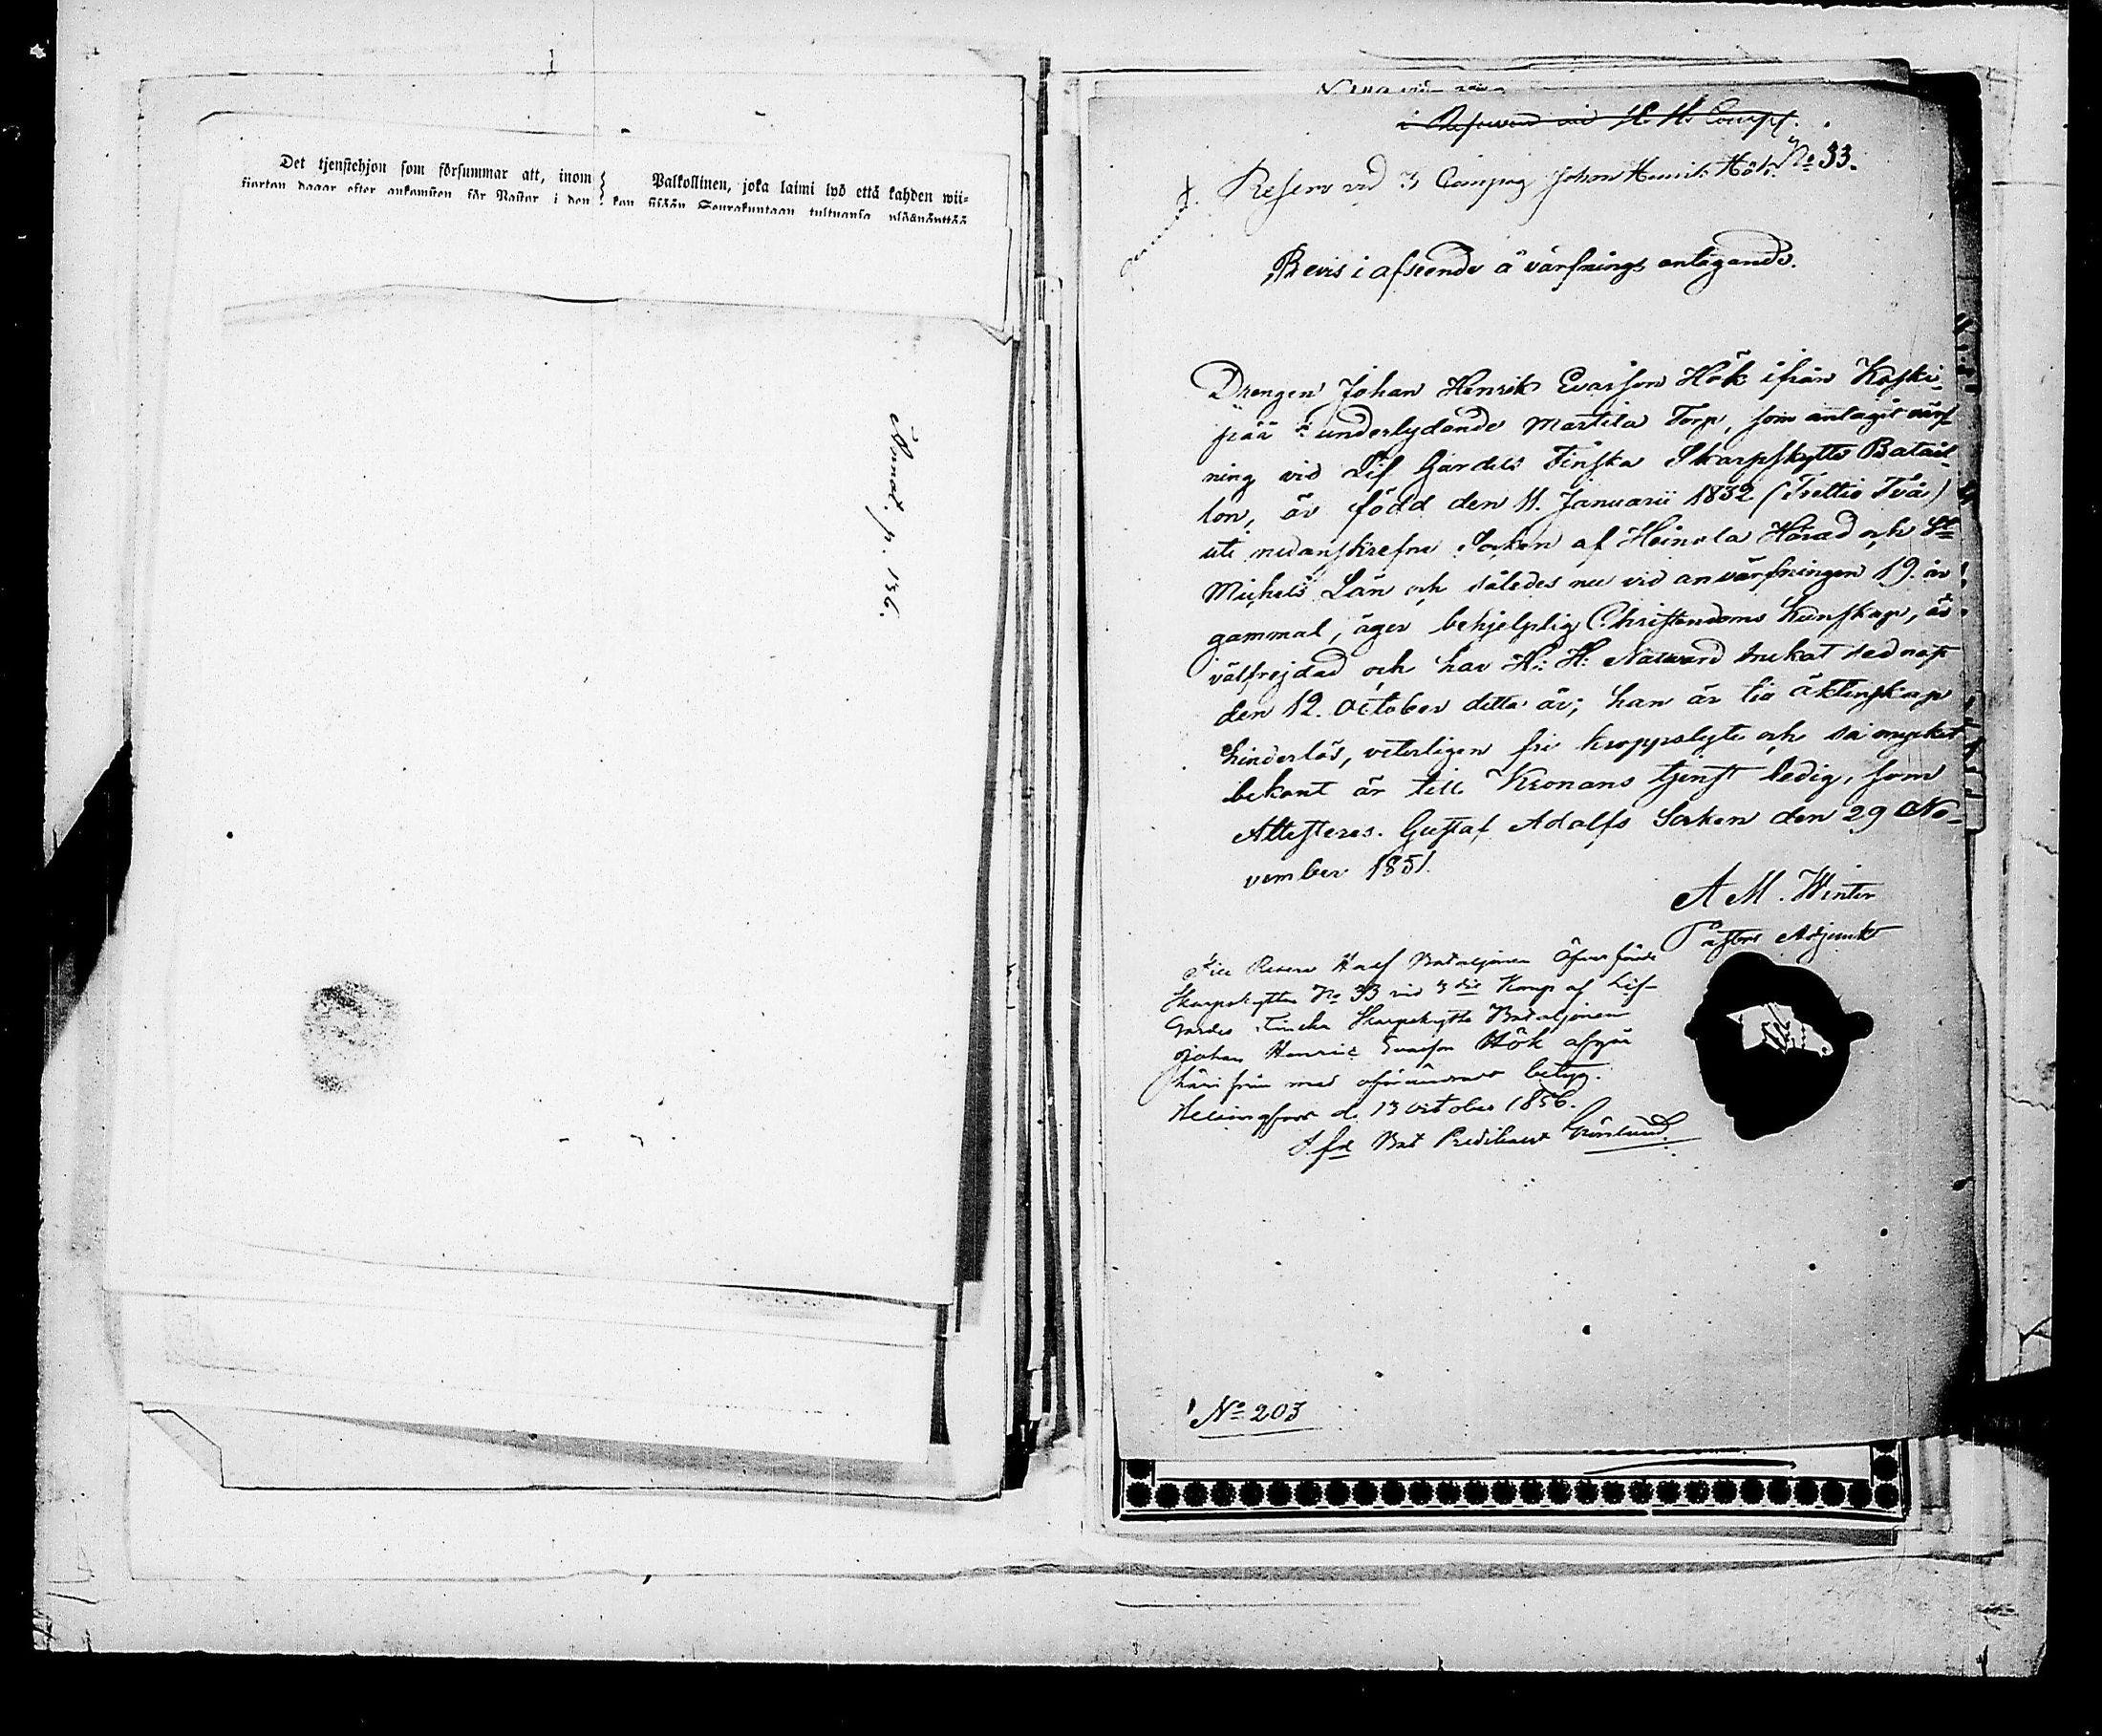 Det tjenstehjon som försummar att, inom
fiorton dagar efter ankomsten för Pastor i den
Palkollinen, joka laimi lyö että kahden wii-
kon sisään Seurakuntaan tultuansa ylösnäyttää
Annot. p. 136.
i Reserven vid H. H. Comp.
Reserv vid 3 Compag Johan Henrik Hök. No 33.
Bevis i afseende å värfnings antagande.
Drengen Johan Henrik Evasson Hök ifrån Koski-
pää underlydande Martila Torp, som antagit värf-
ning vid Lif Gardets Finska Skarpskytte Batail-
lon, är född den 11. Januarii 1832 (Trettio Två)
uti nedanskrefne Socken af Heinola Härad och St
Michels Län och således nu vid anvärfningen 19. år
gammal, äger behjelplig Christendoms Kunskap, är
välfrejdad och har H: H: Nattvard brukat sednast
den 12. October detta år; han är till äktenskap
hinderlös, veterligen fri kroppslyte och så mycket
bekant är till Kronans tjenst ledig, som
Attesteras. Gustaf Adolfs Socken den 29 No-
vember 1851.
A M. Winter
Pastors Adjunkt
Till Reserv Half Bataljonen Öfverförde
Skarpskytten No 33 vid 3die Komp af Lif-
Gardes Finska Skarpskytte Bataljonen
Johan Henric Evasson Hök afgår
härifrån med oförändradt betyg.
Helsingfors d. 13 October 1856.
T. fd Bat Predikant
No 203